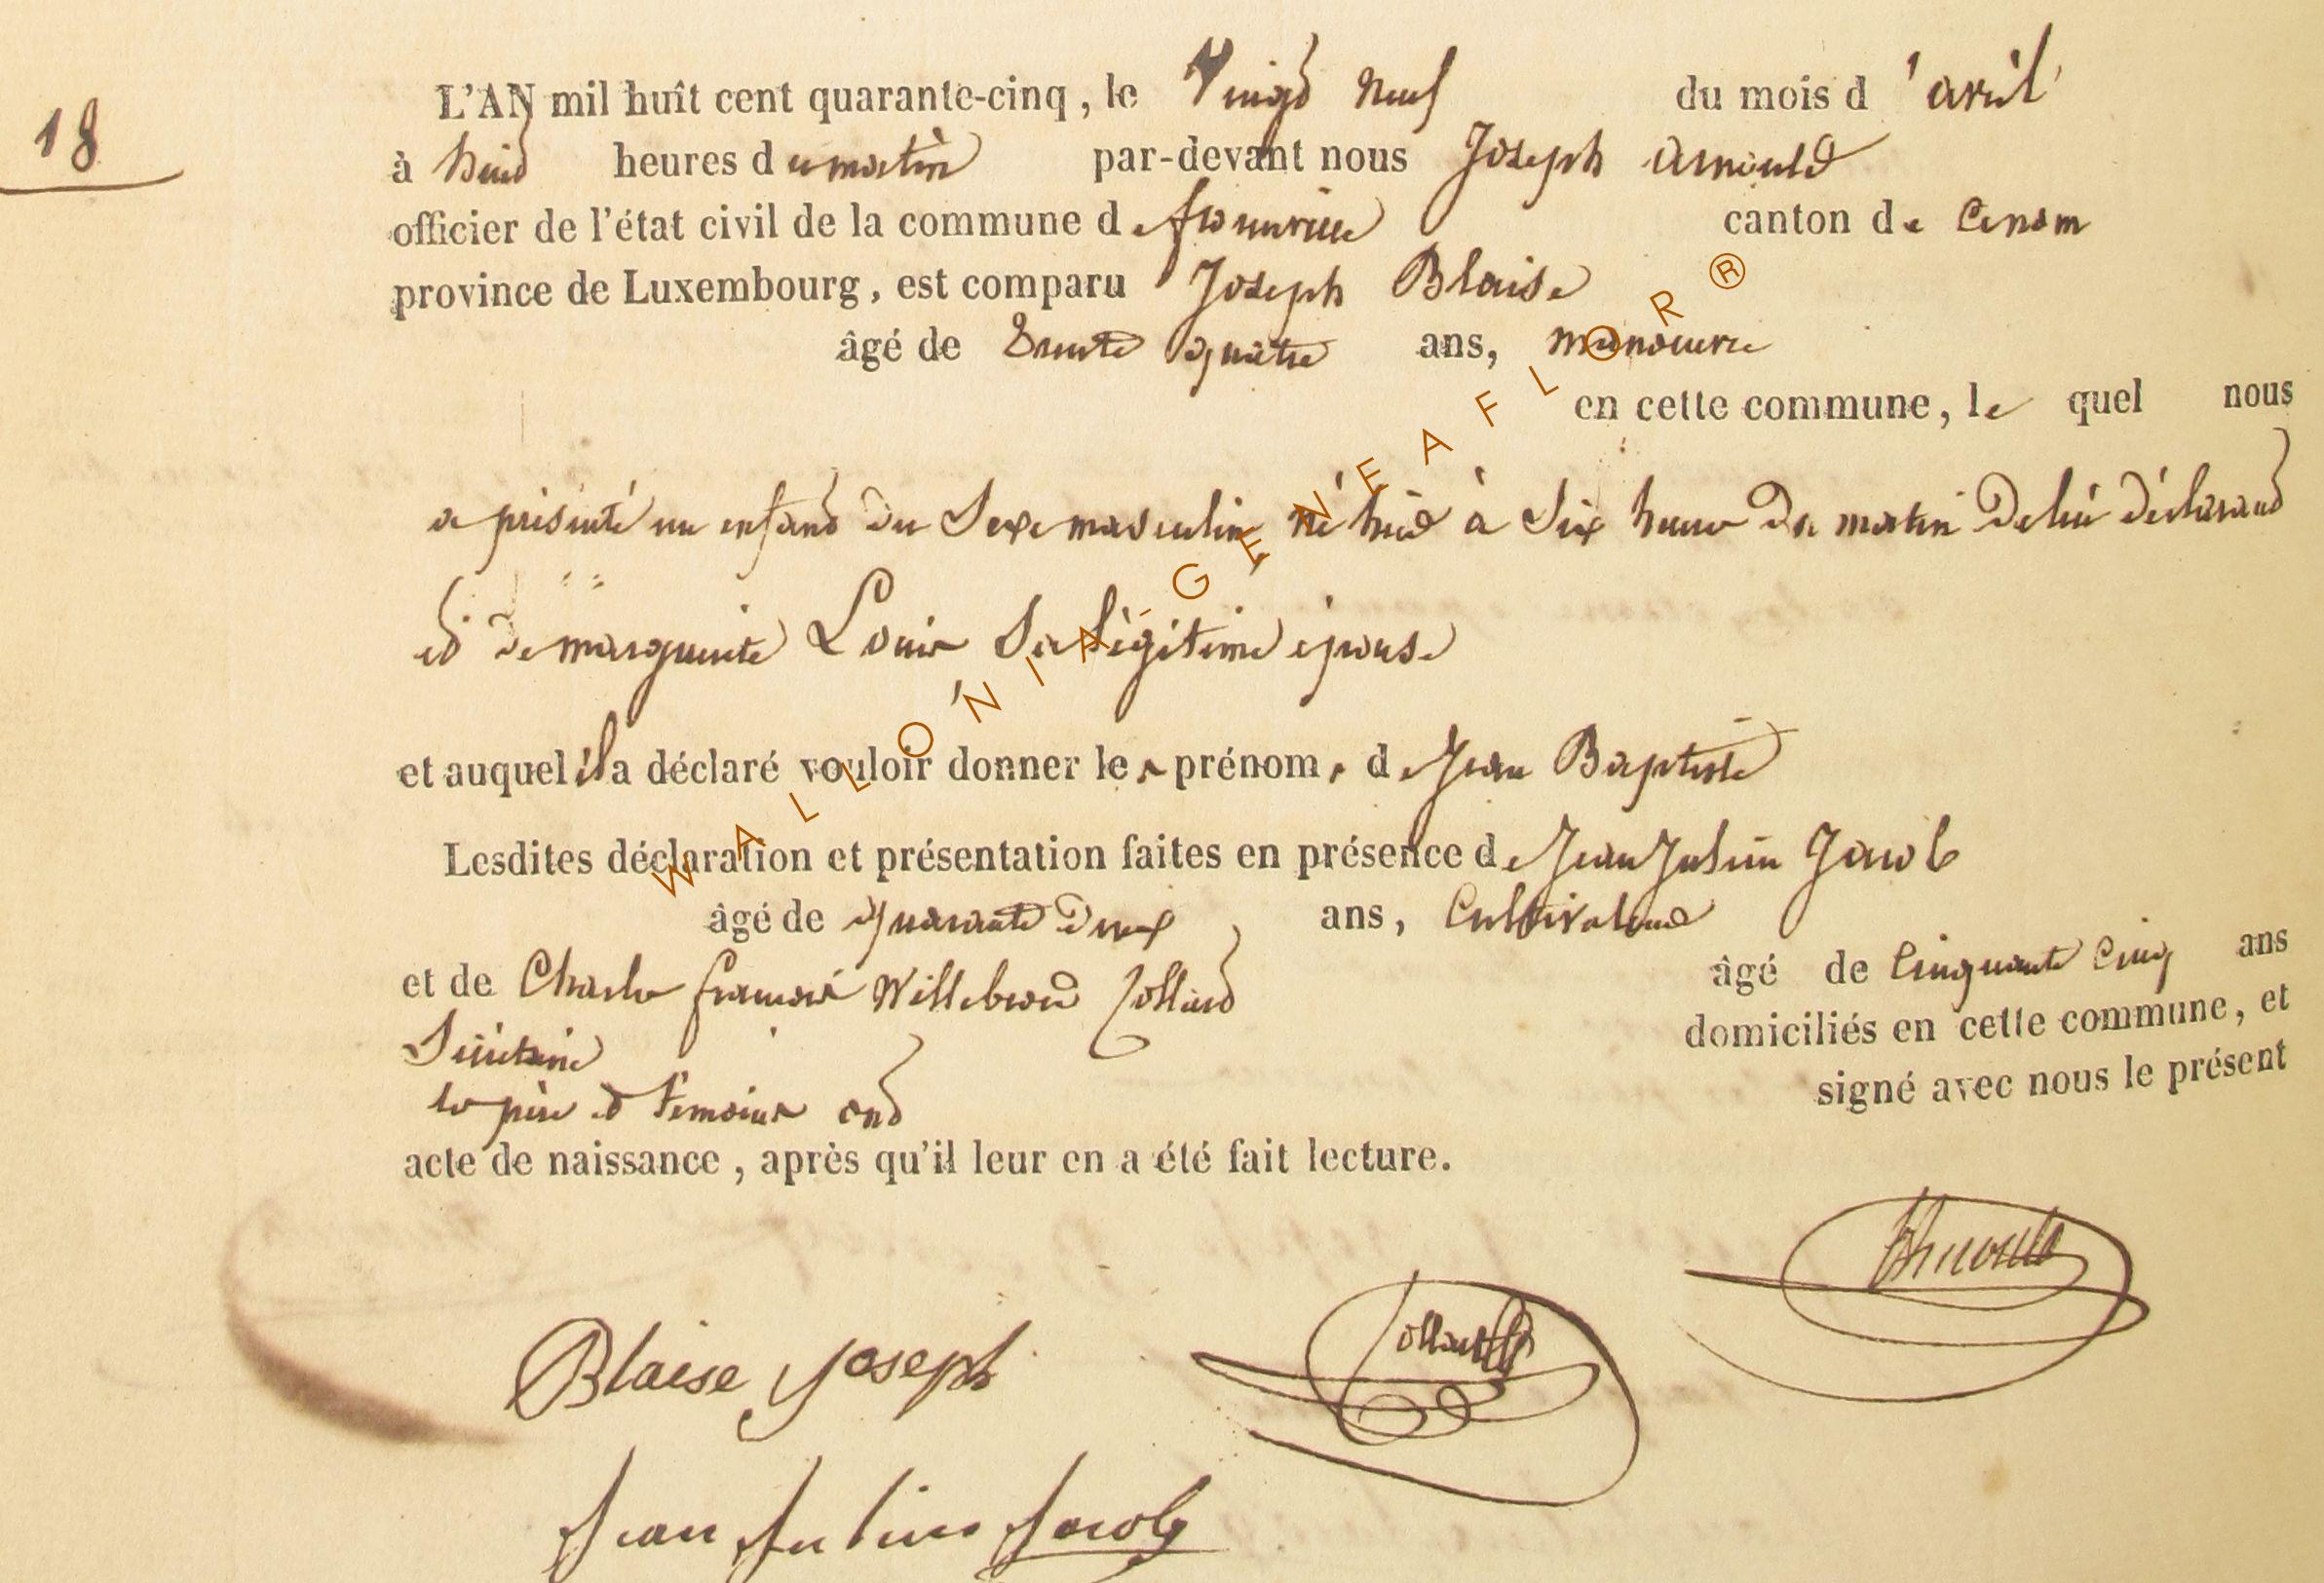 18
L'AN mil huit cent quarante-cinq, le Vingt Neuf du mois d'avril
à huit heures du matin par-devant nous Joseph Arnould
officier de l'état civil de la commune de canton de
province de Luxembourg, est comparu Joseph Blaise
âgé de trente quatre ans, manoeuvre
en cette commune, le quel nous
a présenté un enfant du Sexe masculin né à Six heures du matin de lui déclarant
et de marguerite Louis Sa légitime épouse
et auquel il a déclaré vouloir donner les prénoms de Jean Baptiste
Lesdites déclaration et présentation faites en présence de Jean Julien Jacob
âgé de quarante deux ans, Cultivateur
et de Charles françois Willebrord Collard âgé de Cinquante Cinq ans
Secrétaire domiciliés en cette commune, et
les père et témoins ont signé avec nous le présent
acte de naissance, après qu'il leur en a été fait lecture.
Blaise Joseph Collard Arnould
Jean Julien Jacob
WALLONIA-GENEAFLOR®